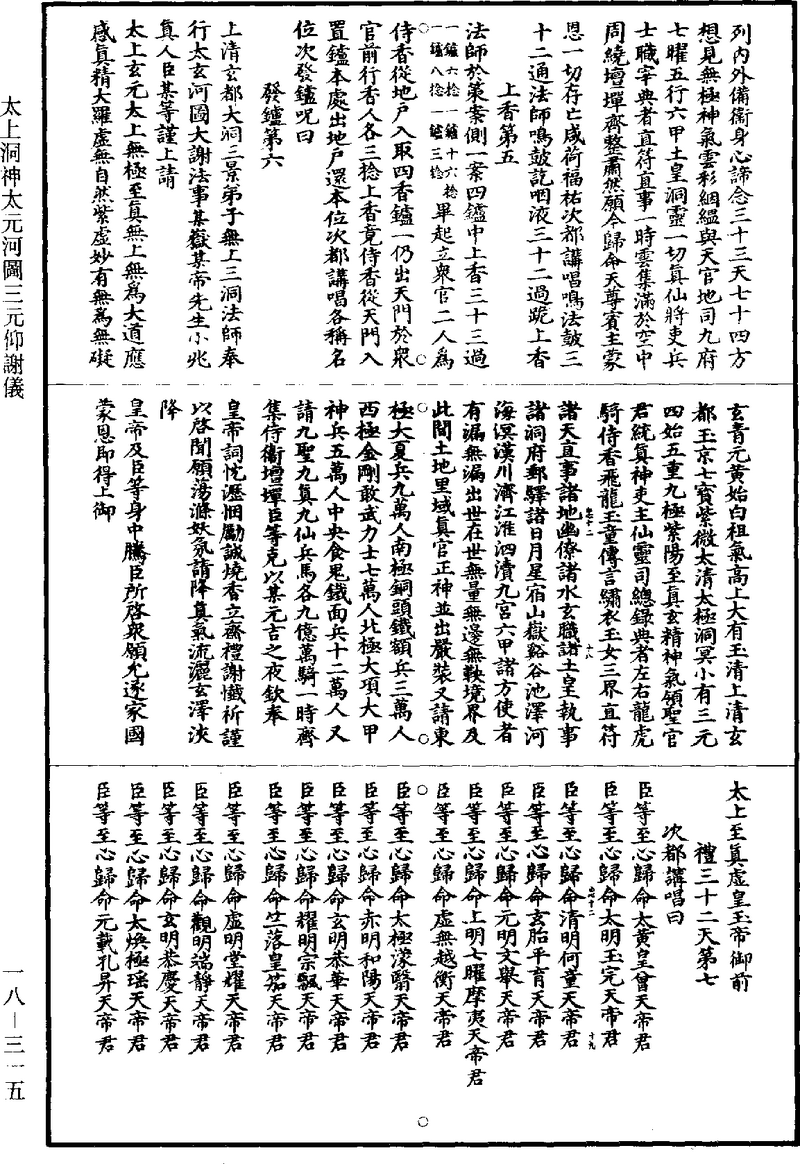 列內外備衞身心諦念三十三天七十四方
想見無極神氣雲彩絪緼與天官地司九府
七曜五行六甲土皇洞靈一切眞仙將吏兵
士職宰典者直符直事一時雲集滿於空中
周繞壇墠齊整肅然願令歸命天尊賓主蒙
恩一切存亡咸荷福祐次都講唱鳴法鼓三
十二通法師鳴鼓訖咽液三十二過跪上香
上香第五
法師於䇿案側一案四鑪中上香三十三過
一鑪六捻一鑪十六捻
一鑪八捻一鑪三捻
畢起立衆官二人爲
侍香從地戶入取四香鑪一仍出天門於衆
官前行香人各三捻上香竟侍香從天門入
置鑪本處出地戶還本位次都講唱各稱名
位次發鑪呪曰
發鑪第六
上清玄都大洞三景弟子無上三洞法師奉
行太玄河圖大謝法事某嶽某帝先生小兆
眞人臣某等謹上請
太上玄元太上無極至眞無上無爲大道應
感眞精大羅虛無自然紫虛妙有無爲無礙
玄青元黃始白祖氣高上大有玉清上清玄
都玉京七寶紫微太清太極洞冥小有三元
四始五重九極紫陽至眞玄精神氣領聖官
君統眞神吏主仙靈司總錄典者左右龍虎
騎侍香飛龍玉童傳言繡衣玉女三界直符
諸天直事諸地幽僚諸水玄職諸土皇執事
諸洞府郵驛諸日月星宿山嶽谿谷池澤河
海溟漢川濟江淮泗瀆九宮六甲諸方使者
有漏無漏出世在世無量無邊無鞅境界及
此間土地里域眞官正神並出嚴裝又請東
極大夏兵九萬人南極銅頭鐵額兵三萬人
西極金剛敢武力士七萬人北極大項大甲
神兵五萬人中央食鬼鐵面兵十二萬人又
請九聖九眞九仙兵馬各九億萬騎一時齊
集侍衞壇墠臣等克以某元吉之夜欽奉
皇帝詞忱瀝悃勵誠燒香立齋禮謝懺祈謹
以啓聞願蕩滌妖氛請降眞氣流灑玄澤浹
降
皇帝及臣等身中騰臣所啓衆願允遂家國
蒙恩即得上御
太上至眞虛皇玉帝御前
禮三十二天第七
次都講唱曰
臣等至心歸命太黃皇曾天帝君
臣等至心歸命太明玉完天帝君
臣等至心歸命清明何童天帝君
臣等至心歸命玄胎平育天帝君
臣等至心歸命元明文舉天帝君
臣等至心歸命上明七曜摩夷天帝君
臣等至心歸命虛無越衡天帝君
臣等至心歸命太極濛翳天帝君
臣等至心歸命赤明和陽天帝君
臣等至心歸命玄明恭華天帝君
臣等至心歸命耀明宗飄天帝君
臣等至心歸命竺落皇笳天帝君
臣等至心歸命虛明堂耀天帝君
臣等至心歸命觀明端靜天帝君
臣等至心歸命玄明恭慶天帝君
臣等至心歸命太煥極瑤天帝君
臣等至心歸命元載孔昇天帝君
太上洞神太元河圖三元仰謝儀
一八—三一五